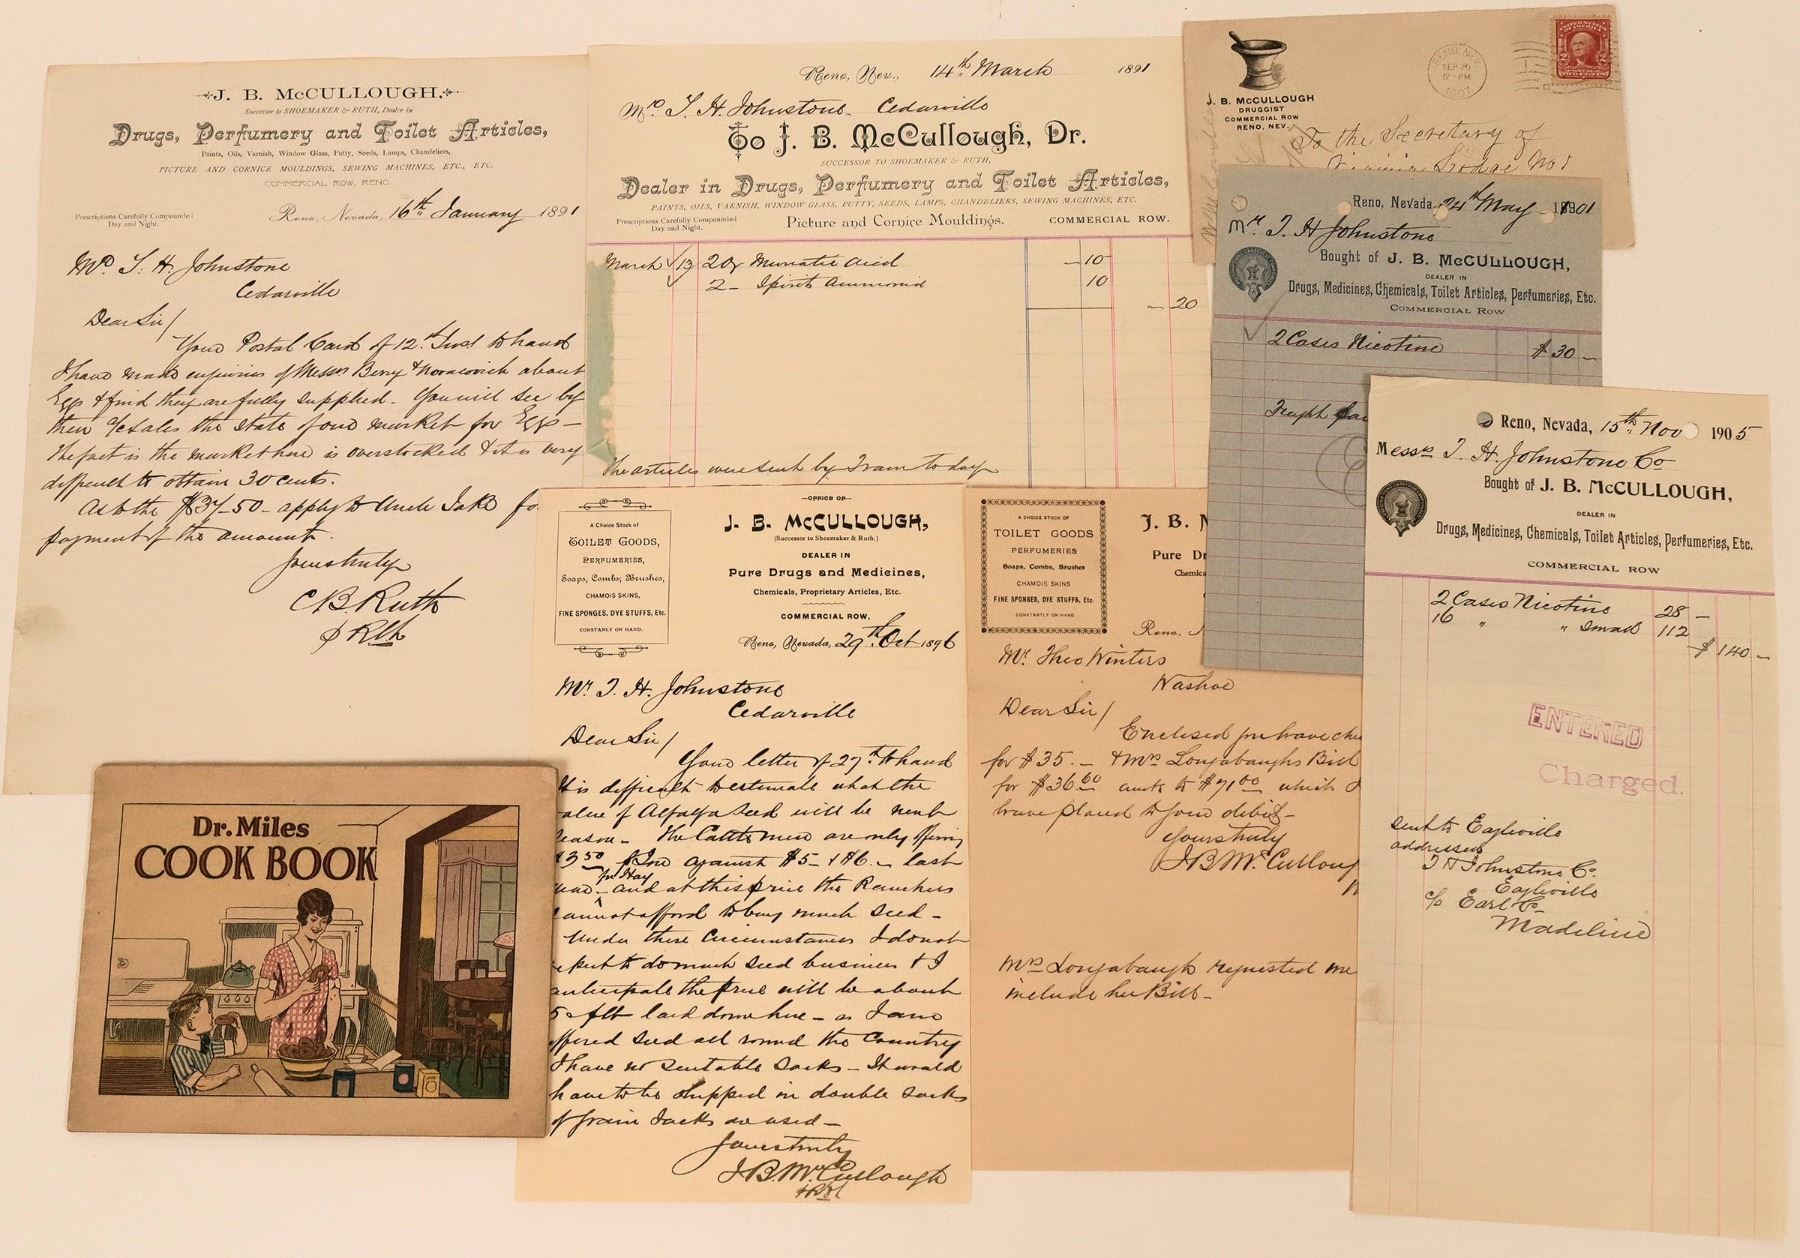 J. B. McCULLOUGH,
Successor to SHOEMAKER & RUTH, Dealer in
Drugs, Perfumery and Toilet Articles,
Paints, Oils, Varnish, Window Glass, Putty, Seeds, Lamps, Chandeliers,
PICTURE AND CORNICE MOULDINGS, SEWING MACHINES, ETC., ETC.
COMMERCIAL ROW, RENO.
Prescriptions Carefully Compounded
Day and Night.
Reno, Nevada, 16th January 1891
Mr. T. H. Johnstone
Cedarville
Dear Sir/
Your Postal Card of 12th Inst to hand
I have made enquiries of Messrs Berry & Novacovich about
Eggs & find they are fully supplied - You will see by
their c/sales the state of our market for Eggs -
The fact is the market here is overstocked & it is very
difficult to obtain 30 cents.
As to the $37.50 - apply to Uncle Jake fo
payment of the amount.
Yours truly
C B Ruth
Reno, Nev., 14th March 1891
Mr. T. H. Johnstone - Cedarville
To J. B. McCullough, Dr.
SUCCESSOR TO SHOEMAKER & RUTH,
Dealer in Drugs, Perfumery and Toilet Articles,
PAINTS, OILS, VARNISH, WINDOW GLASS, PUTTY, SEEDS, LAMPS, CHANDELIERS, SEWING MACHINES, ETC.
Prescriptions Carefully Compounded
Day and Night.
Picture and Cornice Mouldings. COMMERCIAL ROW.
March 13 20z Muriatic Acid - 10
2 - Spirit Ammonia 10
- 20
The articles were sent by Train today
J. B. McCULLOUGH
DRUGGIST
COMMERCIAL ROW
RENO, NEV.
RENO, NEV.
SEP 26
12 PM
1907
To the Secretary of
Virginia Lodge No 1
Reno, Nevada, 24th May 1901
Mr T. H Johnstone
Bought of J. B. McCULLOUGH,
DEALER IN
Drugs, Medicines, Chemicals, Toilet Articles, Perfumeries, Etc.
COMMERCIAL ROW
2 Cases Nicotine $ 30 -
Reno, Nevada, 15th Nov 1905
Messrs T. H. Johnstone Co
Bought of J. B. McCULLOUGH,
DEALER IN
Drugs, Medicines, Chemicals, Toilet Articles, Perfumeries, Etc.
COMMERCIAL ROW
2 Cases Nicotine 28 -
16 " " Small 112
$ 140 -
ENTERED
Charged.
sent to Eagleville
addressed
T H Johnstone Co.
Eagleville
c/o Earl Co
Madeline
A Choice Stock of
TOILET GOODS,
PERFUMERIES,
Soaps, Combs, Brushes,
CHAMOIS SKINS,
FINE SPONGES, DYE STUFFS, Etc.
CONSTANTLY ON HAND.
OFFICE OF
J. B. McCULLOUGH,
(Successor to Shoemaker & Ruth.)
DEALER IN
Pure Drugs and Medicines,
Chemicals, Proprietary Articles, Etc.
COMMERCIAL ROW,
Reno, Nevada, 29th Oct 1896
Mr. T. H. Johnstone
Cedarville
Dear Sir/
Your letter of 27th to hand
It is difficult to estimate what the
value of Alfalfa Seed will be next
season - The Cattlemen are only offering
$3.50 against $5 - & $6. - last
for Hay
year - and at this price the Ranchers
cannot afford to buy much seed -
Under these Circumstances I do not
expect to do much seed business & I
anticipate the price will be about
5 c/lb laid down here - as I am
offered seed all round the Country
I have no suitable sacks - It would
have to be shipped in double sacks
if Grain Sacks are used -
Yours truly
J. B. McCullough
A CHOICE STOCK OF
TOILET GOODS
PERFUMERIES
Soaps, Combs, Brushes,
CHAMOIS SKINS
FINE SPONGES, DYE STUFFS, Etc.
CONSTANTLY ON HAND
J. B. M
Pure Dr
Chemica
Reno, N
Mr. Theo Winters
Washoe
Dear Sir/
Enclosed you have che
for $35. - & Mrs Longabaughs Bill
for $36.00 amts to $71.00 which I
have placed to your debit -
Yours truly
J B McCullou
Mrs Longabaugh requested me
include her Bill -
Dr. Miles
COOK BOOK